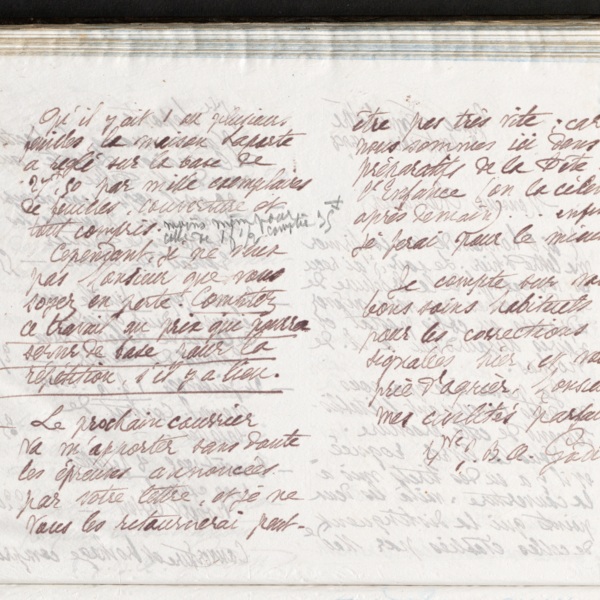 Qu'il y ait 1 ou plusieurs
feuilles la maison Laporte
a réglé sur la base de
50 par mille exemplaires
de feuilles, couverture et
tout compris.
Cependant, je ne veux
pas Monsieur que vous
soyez en perte. Comptez
ce travail au prix qui pourra
servir de base pour la
répétition s'il y a lieu.
Le prochain courrier
va m'apporter sans doute
les épreuves annoncées
par votre lettre, et je ne
vous les retournerai peut-
être pas très vite; car
nous sommes ici dans
préparatifs de la Fête
Ste Enfance (on la célè
après demain)... enfin
je ferai pour le mieux
Je compte sur vos
bons soins habituels
pour les corrections
signalées hier, et vous
prie d'agréer, Monsi
mes civilités parfai